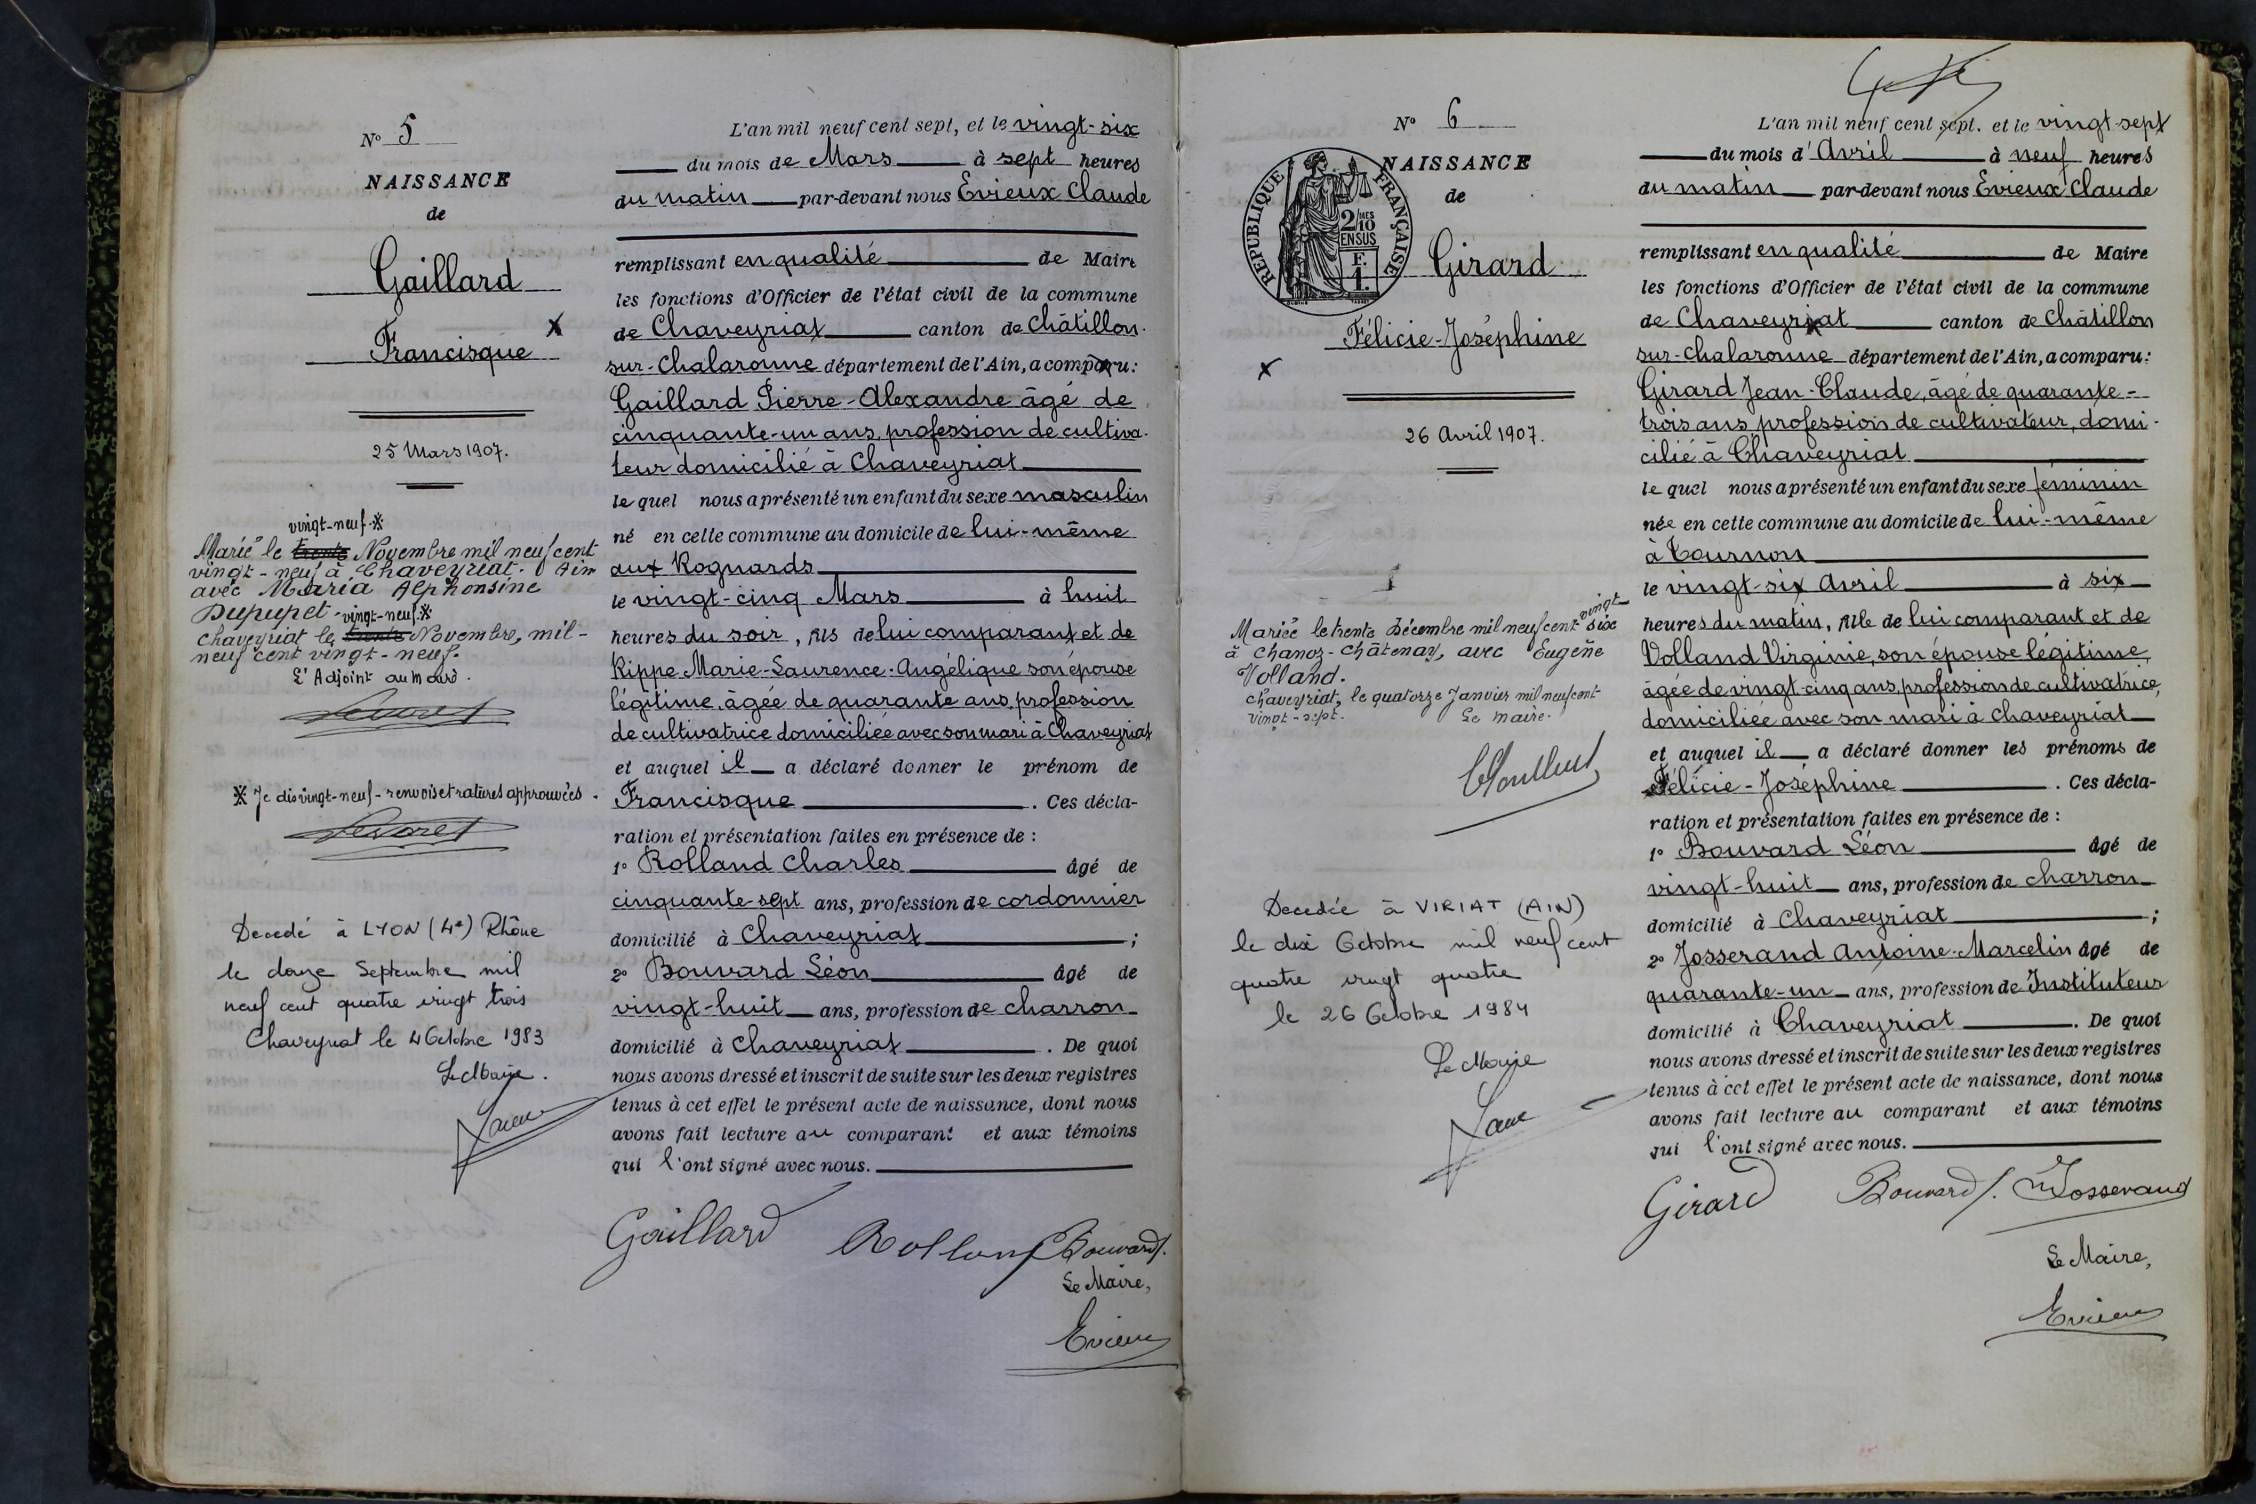 N° 5
NAISSANCE
de
Gaillard
Francisque
25 Mars 1907.
vingt-neuf ※
Marié le trente Novembre mil neuf cent
vingt-neuf à Chaveyriat. Ain
avec Maria Alphonsine
Dupupet
vingt-neuf ※
Chaveyriat le trente Novembre, mil-
neuf cent vingt-neuf.
L'Adjoint au
※ Je dis vingt-neuf - renvois et ratures approuvées.
Decedé à LYON (4e) Rhône
le douze Septembre mil
neuf cent quatre vingt trois
Chaveyriat le 4 Octobre 1983
Le Maire.
L'an mil neuf cent sept, et le vingt-six
du mois de Mars à sept heures
du matin par-devant nous Evieux Claude
remplissant en qualité de Maire
les fonctions d'Officier de l'état civil de la commune
de Chaveyriat canton de Châtillon-
sur-Chalaronne département de l'Ain, a comparu:
Gaillard Pierre-Alexandre âgé de
cinquante-un ans, profession de cultiva-
teur domicilié à Chaveyriat
le quel nous a présenté un enfant du sexe masculin
né en cette commune au domicile de lui-même
aux Roguards
le vingt-cinq Mars à huit
heures du soir, fils de lui comparant et de
Rippe Marie-Laurence-Angélique son épouse
légitime, âgée de quarante ans, profession
de cultivatrice domiciliée avec son mari à Chaveyriat
et auquel il a déclaré donner le prénom de
Francisque . Ces décla-
ration et présentation faites en présence de :
1° Rolland Charles âgé de
cinquante-sept ans, profession de cordonnier
domicilié à Chaveyriat ;
2° Bouvard Léon âgé de
vingt-huit ans, profession de charron
domicilié à Chaveyriat . De quoi
nous avons dressé et inscrit de suite sur les deux registres
tenus à cet effet le présent acte de naissance, dont nous
avons fait lecture au comparant et aux témoins
qui l'ont signé avec nous.
Gaillard Rolland Bouvard
Le Maire,
Evieux
N° 6
NAISSANCE
de
REPUBLIQUE FRANÇAISE
2/10
EN SUS
F.
1.
Girard
Félicie-Joséphine
26 Avril 1907.
vingt
Mariée le trente Décembre mil neuf cent six
à Chanoz-Châtenay, avec Eugène
Volland.
Chaveyriat, le quatorze Janvier mil neuf cent-
vingt-sept. Le maire.
Decedée à VIRIAT (AIN)
le dix Octobre mil neuf cent
quatre vingt quatre
le 26 Octobre 1984
Le Maire
L'an mil neuf cent sept. et le vingt-sept
du mois d'Avril à neuf heures
du matin par-devant nous Evieux Claude
remplissant en qualité de Maire
les fonctions d'Officier de l'état civil de la commune
de Chaveyriat canton de Châtillon
sur-Chalaronne département de l'Ain, a comparu:
Girard Jean-Claude, âgé de quarante-
trois ans, profession de cultivateur, domi-
cilié à Chaveyriat
le quel nous a présenté un enfant du sexe féminin
née en cette commune au domicile de lui-même
à Tournon
le vingt-six Avril à six
heures du matin, fille de lui comparant et de
Volland Virginie, son épouse légitime,
âgée de vingt-cinq ans, profession de cultivatrice,
domiciliée avec son mari à Chaveyriat
et auquel il a déclaré donner les prénoms de
Félicie-Joséphine . Ces décla-
ration et présentation faites en présence de :
1° Bouvard Léon âgé de
vingt-huit ans, profession de charron
domicilié à Chaveyriat ;
2° Josserand Antoine-Marcelin âgé de
quarante-un ans, profession de Instituteur
domicilié à Chaveyriat . De quoi
nous avons dressé et inscrit de suite sur les deux registres
tenus à cet effet le présent acte de naissance, dont nous
avons fait lecture au comparant et aux témoins
qui l'ont signé avec nous.
Girard Bouvard Josserand
Le Maire,
Evieux